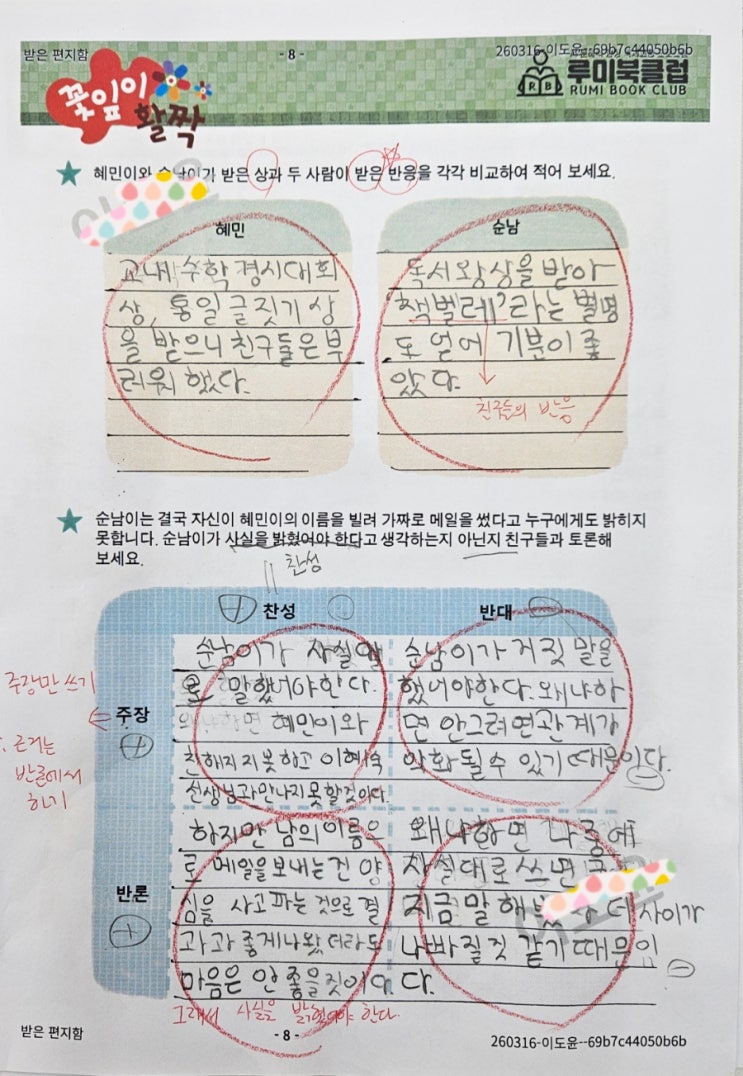 받은 편지함
- 8 -
260316-이도윤--69b7c44050b6b
꽃잎이
활짝
루미북클럽
RUMI BOOK CLUB
혜민이와 순남이가 받은 상과 두 사람이 받은 반응을 각각 비교하여 적어 보세요.
혜민
교내 수학 경시대회
상, 통일 글짓기 상
을 받으니 친구들은 부
러워 했다.
순남
독서왕상을 받아
'책벌레'라는 별명
도 얻어 기분이 좋
았다.
친구들의 반응
순남이는 결국 자신이 혜민이의 이름을 빌려 가짜로 메일을 썼다고 누구에게도 밝히지
못합니다. 순남이가 사실을 밝혔어야 한다고 생각하는지 아닌지 친구들과 토론해
보세요.
찬성
찬성
반대
주장만 쓰기
근거는
반론에서
하기
주장
순남이가 사실대
로 말했어야한다.
왜냐하면 혜민이와
친해지지못하고 이혜숙
선생님과만나지못할것이다.
순남이가 거짓말을
했어야한다. 왜냐하
면 안그러면관계가
악화 될 수 있기 때문이다.
반론
하지만 남의이름으
로 메일을보내는건 양
심을 사고파는것으로 결
과과 좋게나왔더라도
마음은 안 좋을것이다.
그래서 사실을 밝혔어야 한다.
왜냐하면 나중에
사실대로 쓰면
지금 말해 사이가
나빠질것 같기때문이
다.
받은 편지함
- 8 -
260316-이도윤--69b7c44050b6b